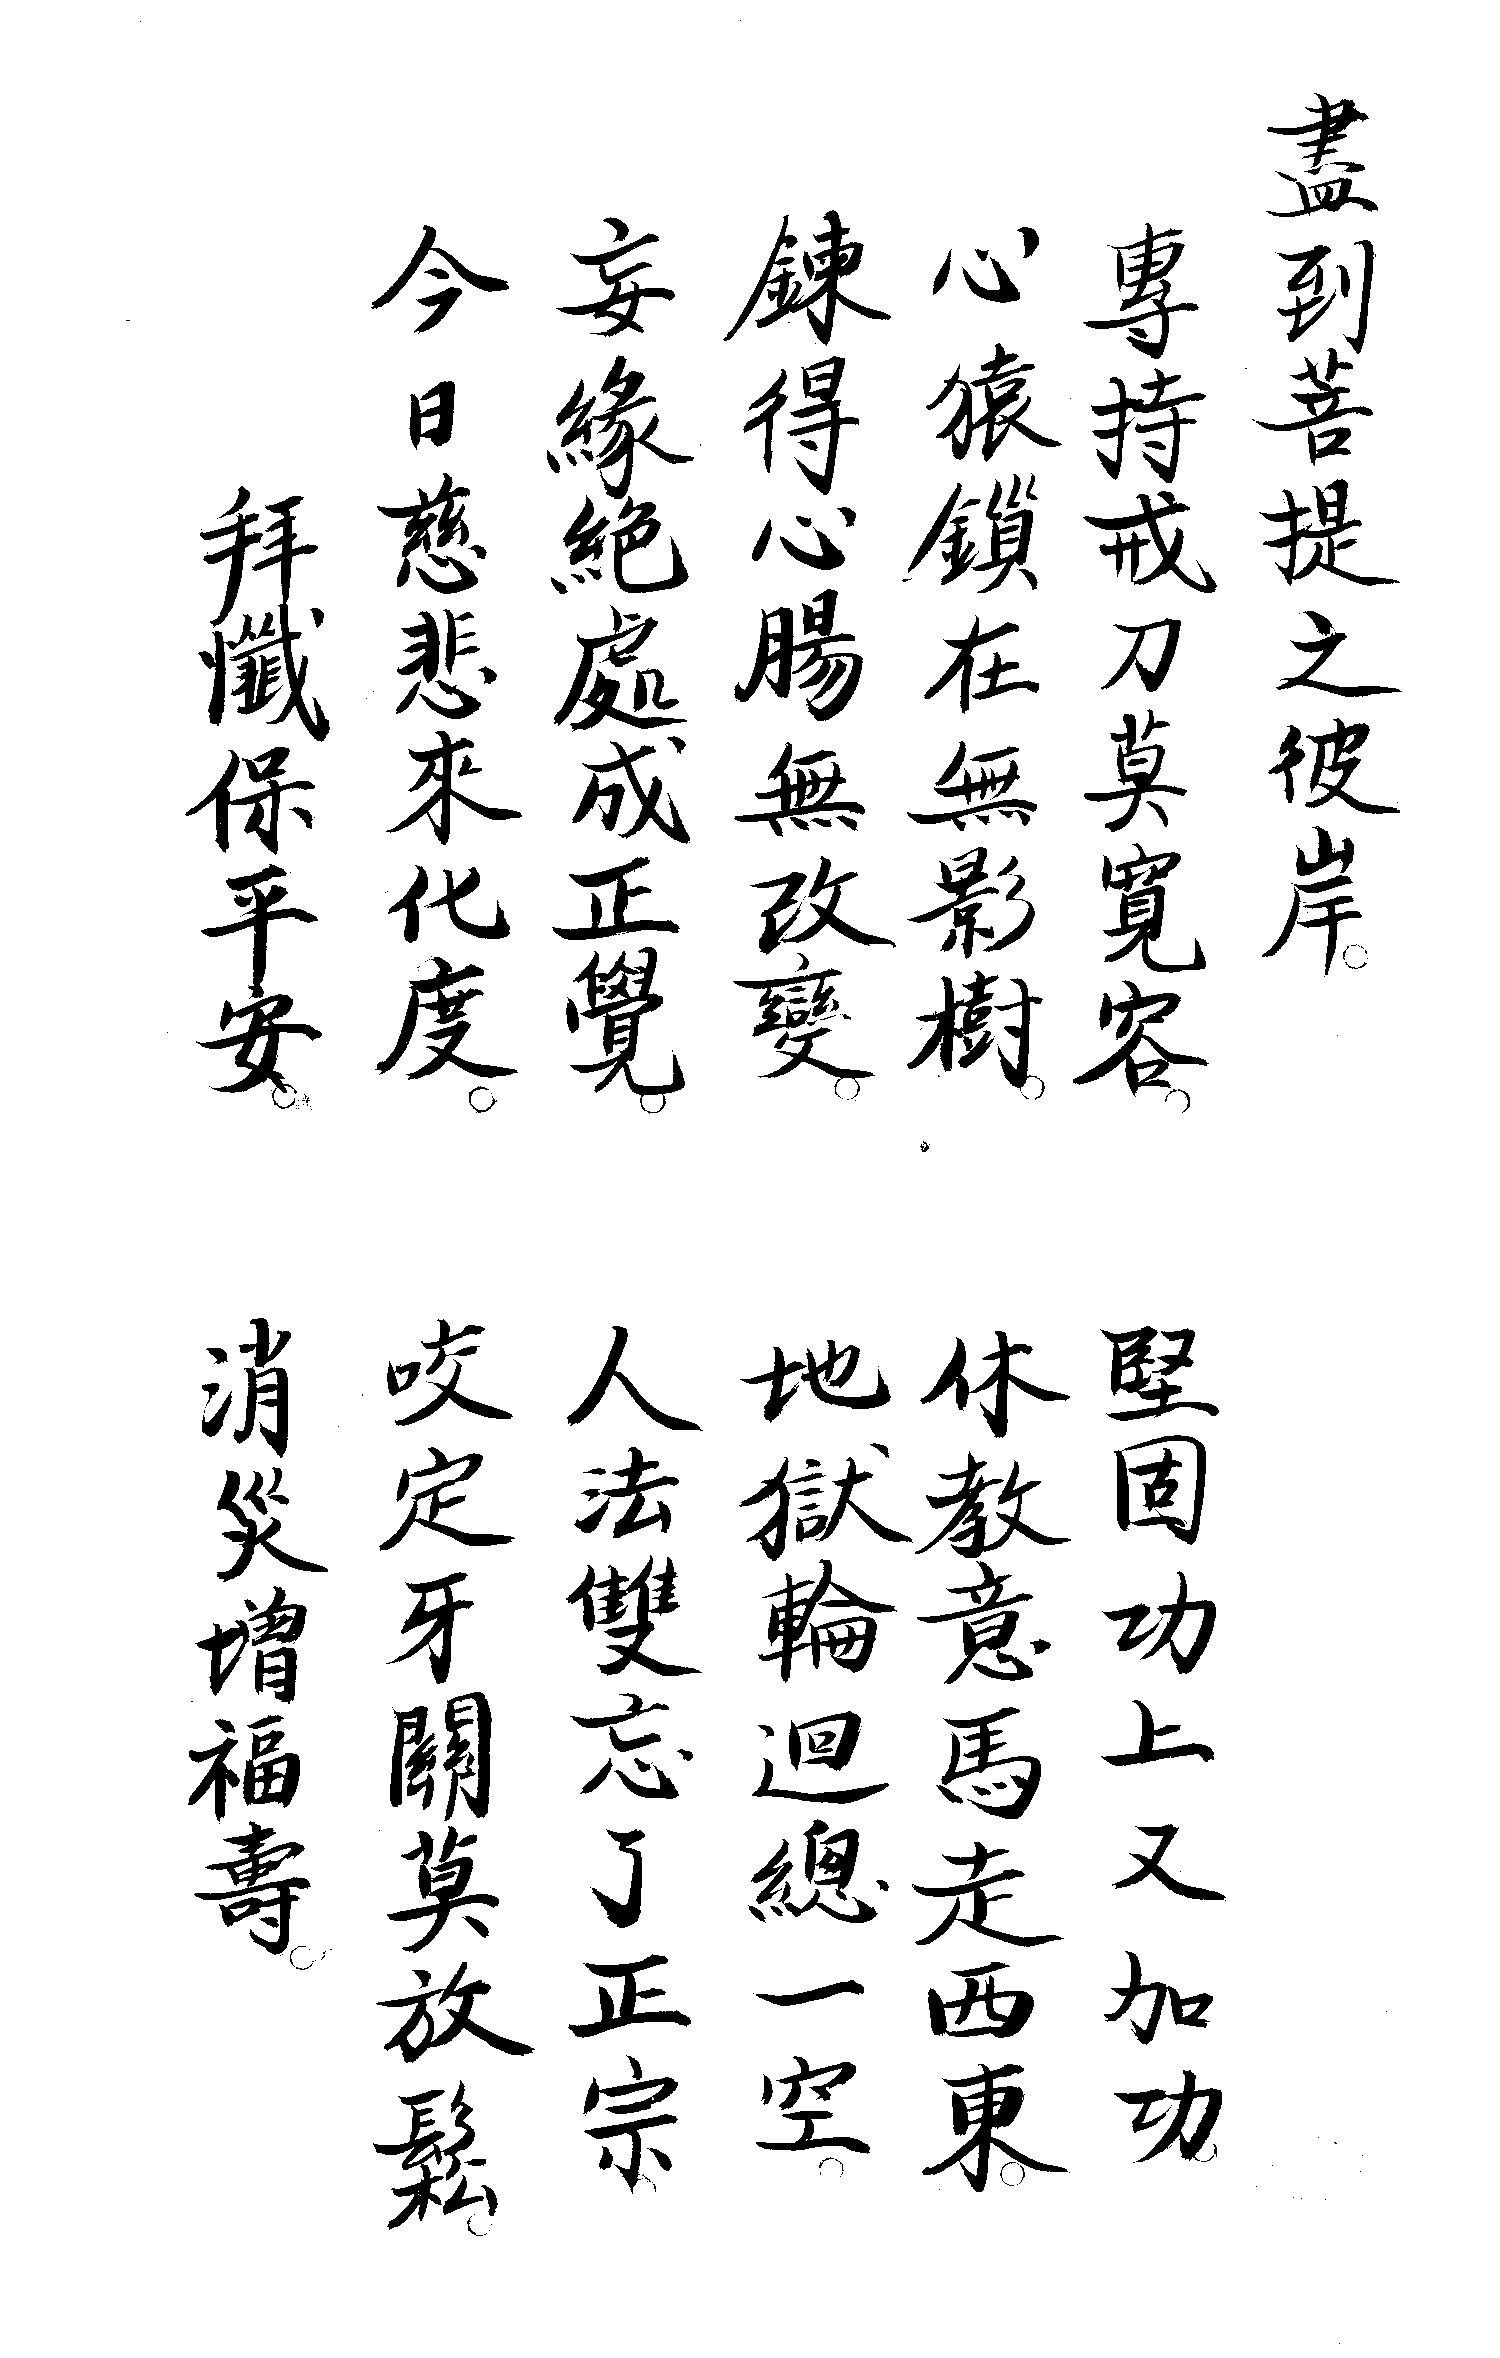 盡到菩提之彼岸。
專持戒刀莫寬容。
堅固功上又加功。
心猿鎖在無影樹。
休教意馬走西東。
鍊得心腸無改變。
地獄輪迴總一空。
妄緣絕處成正覺。
人法雙忘了正宗。
今日慈悲來化度。
咬定牙關莫放鬆。
拜懺保平安。
消災增福壽。